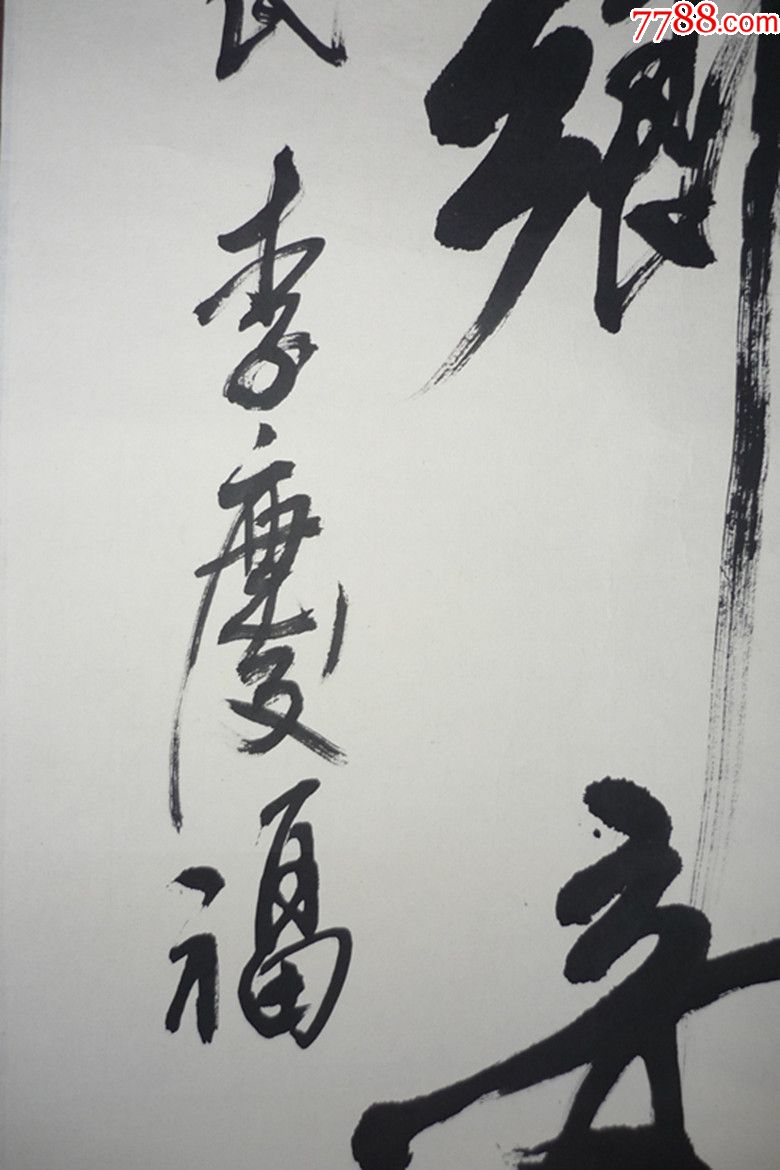 7788.com
鄉
李慶福